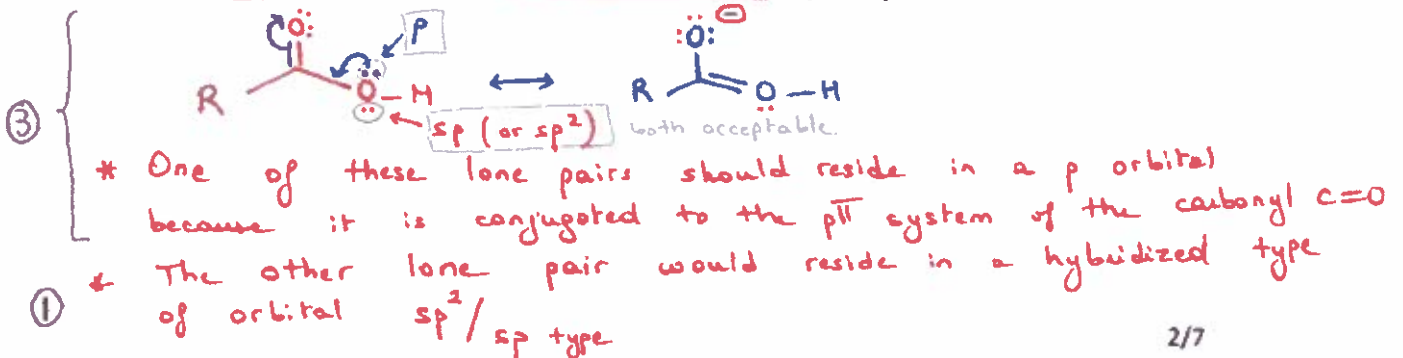 O: P
R O — H ↔ :O: ⊖ R O — H
③ sp (or sp²) both acceptable.
* One of these lone pairs should reside in a p orbital
because it is conjugated to the pπ system of the carbonyl C=O
* The other lone pair would reside in a hybridized type
① of orbital sp²/sp type
2/7